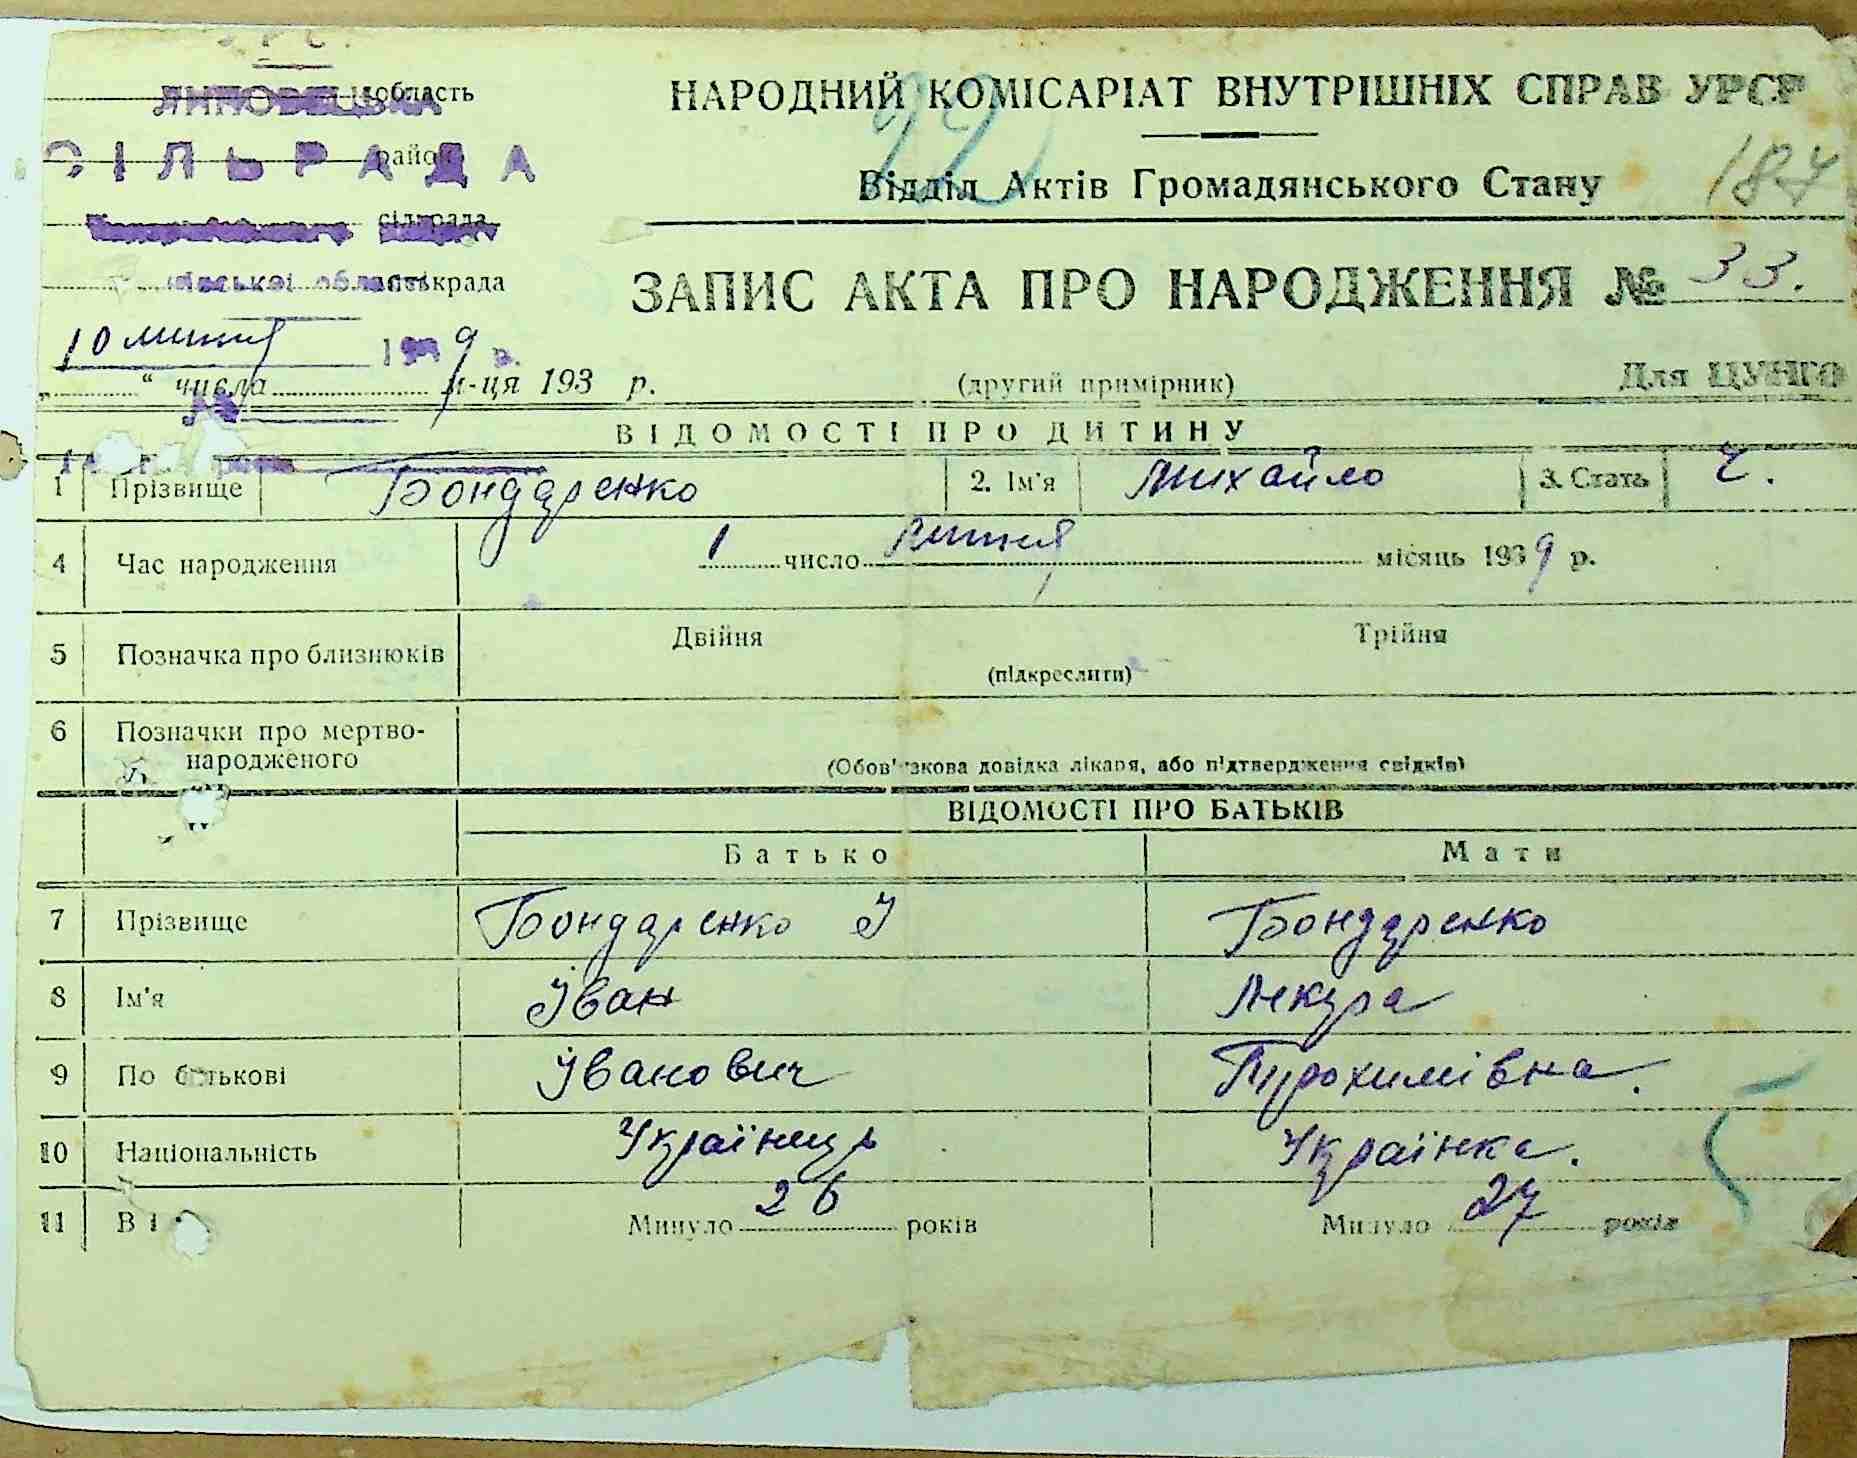 УРС
ЛИПОВЕЦЬКА область
СІЛЬРАДА район
сільрада
Київської області міськрада
10 липня 1939 р.
" числа м-ця 193 р.
№
НАРОДНИЙ КОМІСАРІАТ ВНУТРІШНІХ СПРАВ УРСР
Відділ Актів Громадянського Стану
187
ЗАПИС АКТА ПРО НАРОДЖЕННЯ № 33.
(другий примірник)
Для ЦУНГО
ВІДОМОСТІ ПРО ДИТИНУ
1 Прізвище Бондаренко 2. Ім'я Михайло 3. Стать Ч.
4 Час народження 1 число липня місяць 1939 р.
5 Позначка про близнюків Двійня Трійня
(підкреслити)
6 Позначки про мертво-
народженого
(Обов'язкова довідка лікаря, або підтвердження свідків)
ВІДОМОСТІ ПРО БАТЬКІВ
Батько Мати
7 Прізвище Бондаренко І Бондаренко
8 Ім'я Іван
9 По батькові Іванович
10 Національність Українець Українка.
11 Ві Минуло 26 років Минуло 27 років